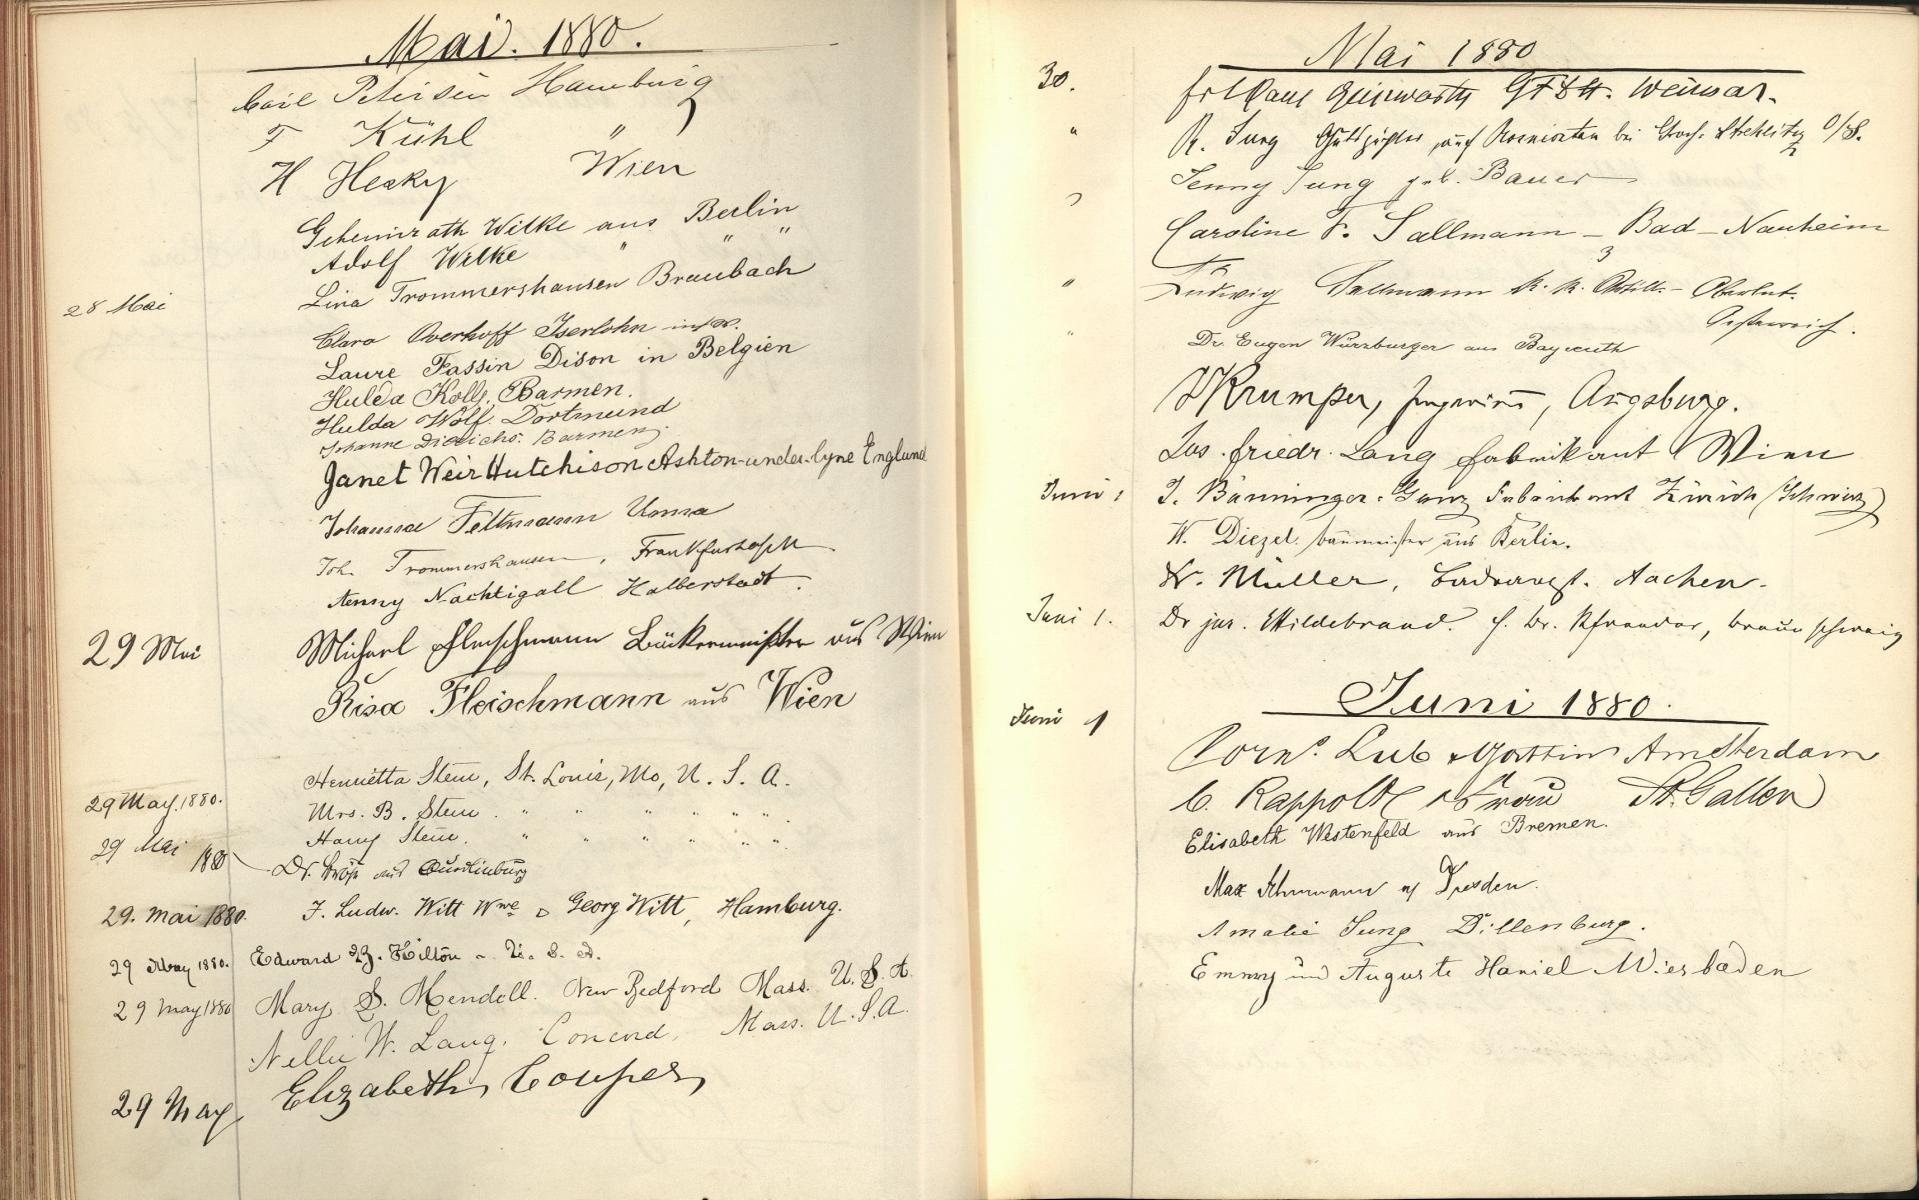 Mai. 1880.
Carl Petersen Hamburg
F Kühl "
H Hesky Wien
Geheimrath Wilke aus Berlin
Adolf Wilke " " "
28 Mai Lina Trommershausen Braubach
Clara Overhoff Iserlohn
Laure Fassin Dison in Belgien
Hulda Kolls, Barmen.
Hulda Wolf. Dortmund
Johanne Diederichs. Barmen.
Janet Weir Hutchison Ashton-under-lyne England
Johanna Feltmann Unna
Joh. Trommershausen, Frankfurt a/M
Aenny Nachtigall Halberstadt.
29 Mai Michael Fleischmann Bäckermeister aus Wien
Risa Fleischmann aus Wien
Henrietta Stern, St. Louis, Mo, U. S. A.
29 May. 1880. Mrs. B. Stern. " " " " " "
29 Mai Harry Stern. " " " " "
1880 Dr. aus Quedlinburg
29. Mai 1880. J. Ludw. Witt Wwe Georg Witt, Hamburg.
29 May 1880. Edward B. Hilton - U. S. A.
29 May 1880 Mary S. Mendell. New Bedford Mass. U. S. A.
Nellie W. Lang. Concord, Mass. U. S. A.
29 May Elizabeth Couper
Mai 1880
30. Weimar.
" R. Jung Gutspächter auf bei Groß Strehlitz O/S.
Jenny Jung geb. Bauer
Caroline F. Sallmann - Bad-Nauheim
" Ludwig Sallmann k. k. Artill.- Oberlut.
Oesterreich.
" Dr. Eugen Würzburger aus Bayreuth
Krumper, Augsburg.
Jos. friedr. Lang fabrikant Wien
Juni 1 J. Bänninger-Ganz Fabrikant Zürich (Schweiz)
W. Diezel. baumeister aus Berlin.
Dr. Müller, Badearzt. Aachen.
Juni 1. Dr jur. Hildebrand. braunschweig
Juni 1880.
Juni 1 Corn. Lub & Gattin Amsterdam
C. Rappold & Frau St. Gallen
Elisabeth Westenfeld aus Bremen.
Max Dresden.
Amalie Jung Dillenburg.
Emmy und Auguste Haniel Wiesbaden